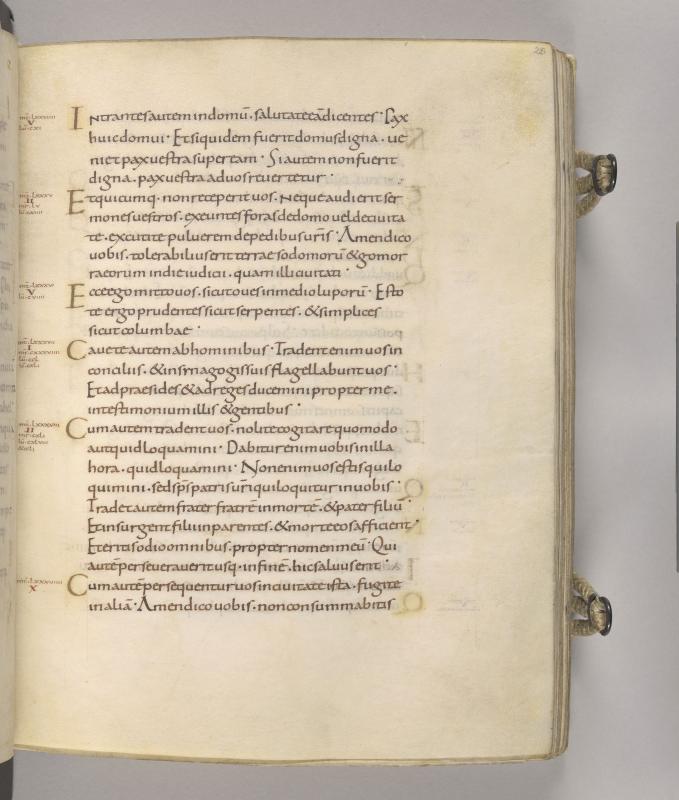 28
Intrantes autem in domū. salutate eā dicentes. Pax
huic domui. Et siquidem fuerit domus digna. ue
niet pax uestra super eam. Si autem non fuerit
digna. pax uestra ad uos reuertetur.
Et quicumq. non receperit uos. neque audierit ser
mones uestros. exeuntes foras de domo uel de ciuita
te. excutite puluerem de pedibus uris. Amen dico
uobis. tolerabilius erit terrae sodomorū & gomor
raeorum in die iudicii. quam illi ciuitati.
Ecce ego mitto uos. sicut oues in medio luporū. Esto
te ergo prudentes sicut serpentes. & simplices
sicut columbae.
Cauete autem ab hominibus. Tradent enim uos in
conciliis. & in synagogis suis flagellabunt uos.
Et ad praesides & ad reges ducemini propter me.
in testimonium illis & gentibus.
Cum autem tradent uos. nolite cogitare quomodo
aut quid loquamini. Dabitur enim uobis in illa
hora. quid loquamini. Non enim uos estis qui lo
quimini. sed sps patris uri qui loquitur in uobis.
Tradet autem frater fratrē in mortē. & pater filiū.
Et insurgent filii in parentes. & morte eos afficient.
Et eritis odio omnibus. propter nomen meū. Qui
autē perseuerauerit usq. in finē. hic saluus erit.
Cum autē persequentur uos in ciuitate ista. fugite
in aliā. Amen dico uobis. non consummabitis
V
II
V
I
II
X